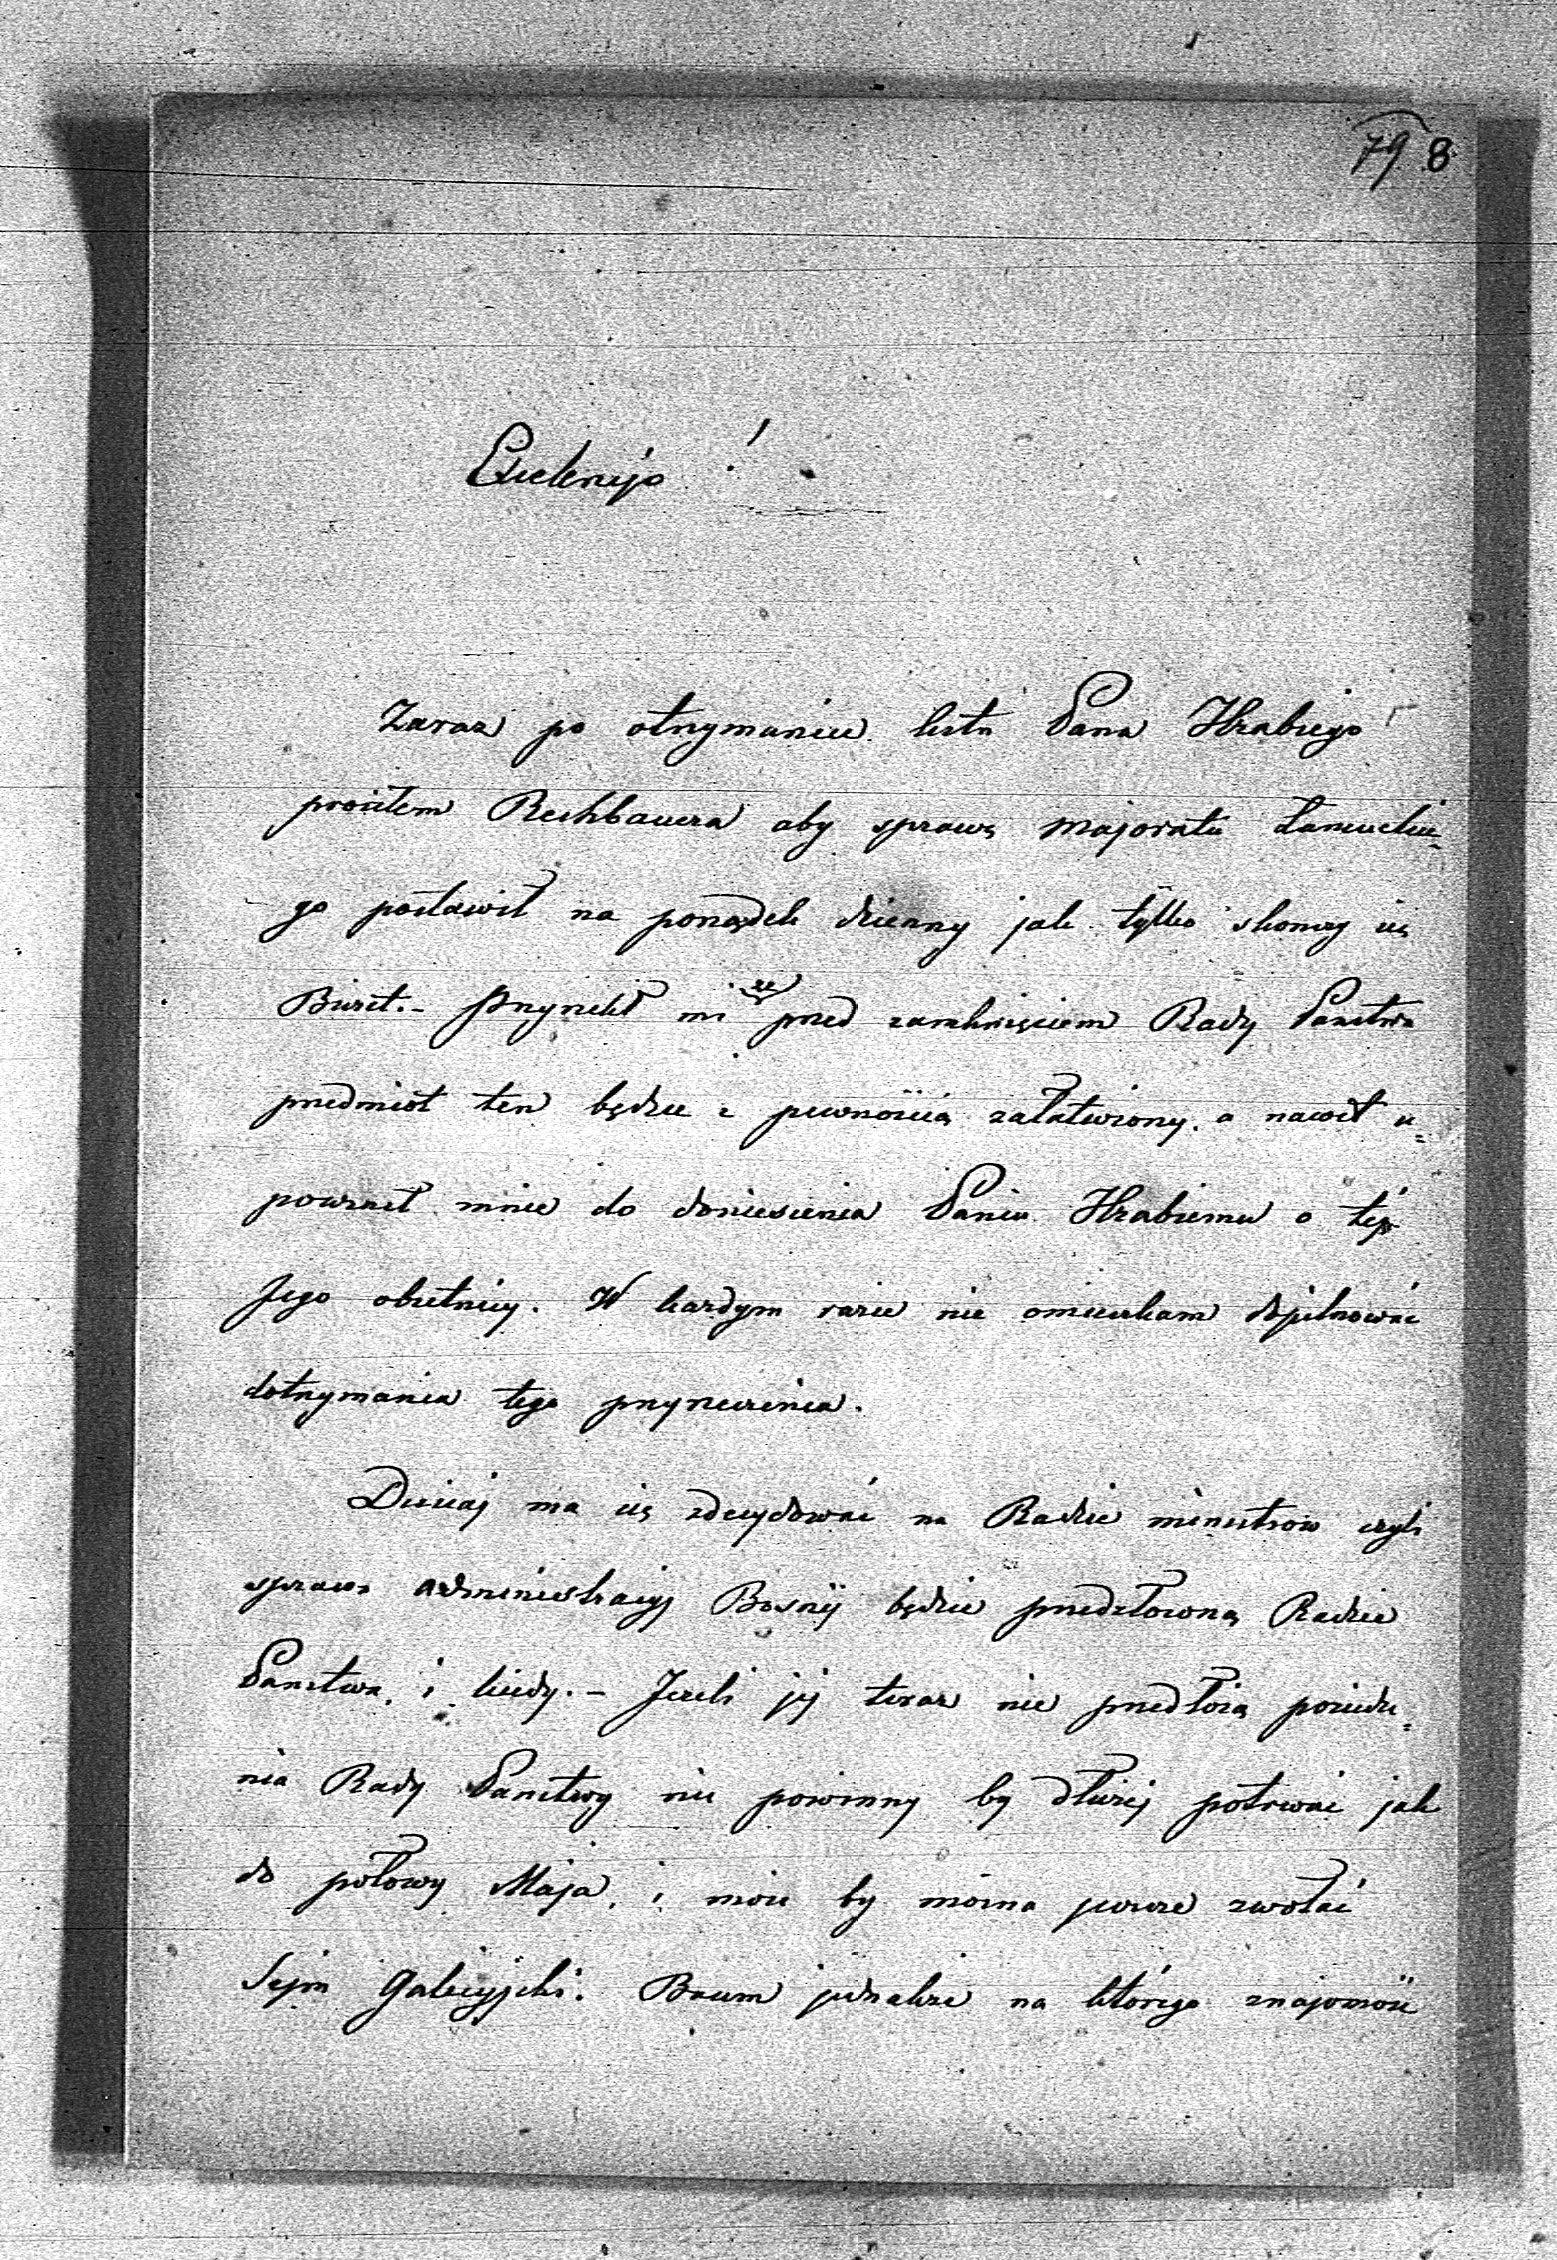 79 8
Excelencyjo!
Zaraz po otrzymaniu listu Pana Hrabiego
prosiłem Rechbauera aby sprawę majoratu Łańcuckie=
go postawił na porządek dzienny jak tylko skończy się
Budżet.- Przyrzekł mi że przed zamknięciem Rady Państwa
przedmiot ten będzie z pewnością załatwiony. a nawet u=
poważnił mnie do doniesienia Panu Hrabiemu o tej
Jego obietnicy. W każdym razie nie omieszkam dopilnować
dotrzymania tego przyrzeczenia.
Dzisiaj ma się zdecydować na Radzie ministrów czyli
sprawa administracyj Bosnij będzie przedłożoną Radzie
Państwa, i kiedy.- Jeżeli jej teraz nie przedłożą posiedze=
nia Rady Państwa nie powinny by dłużej potrwać jak
do połowy Maja, i może by można jeszcze zwołać
Sejm Galicyjski. Baum jednakże na którego znajomość